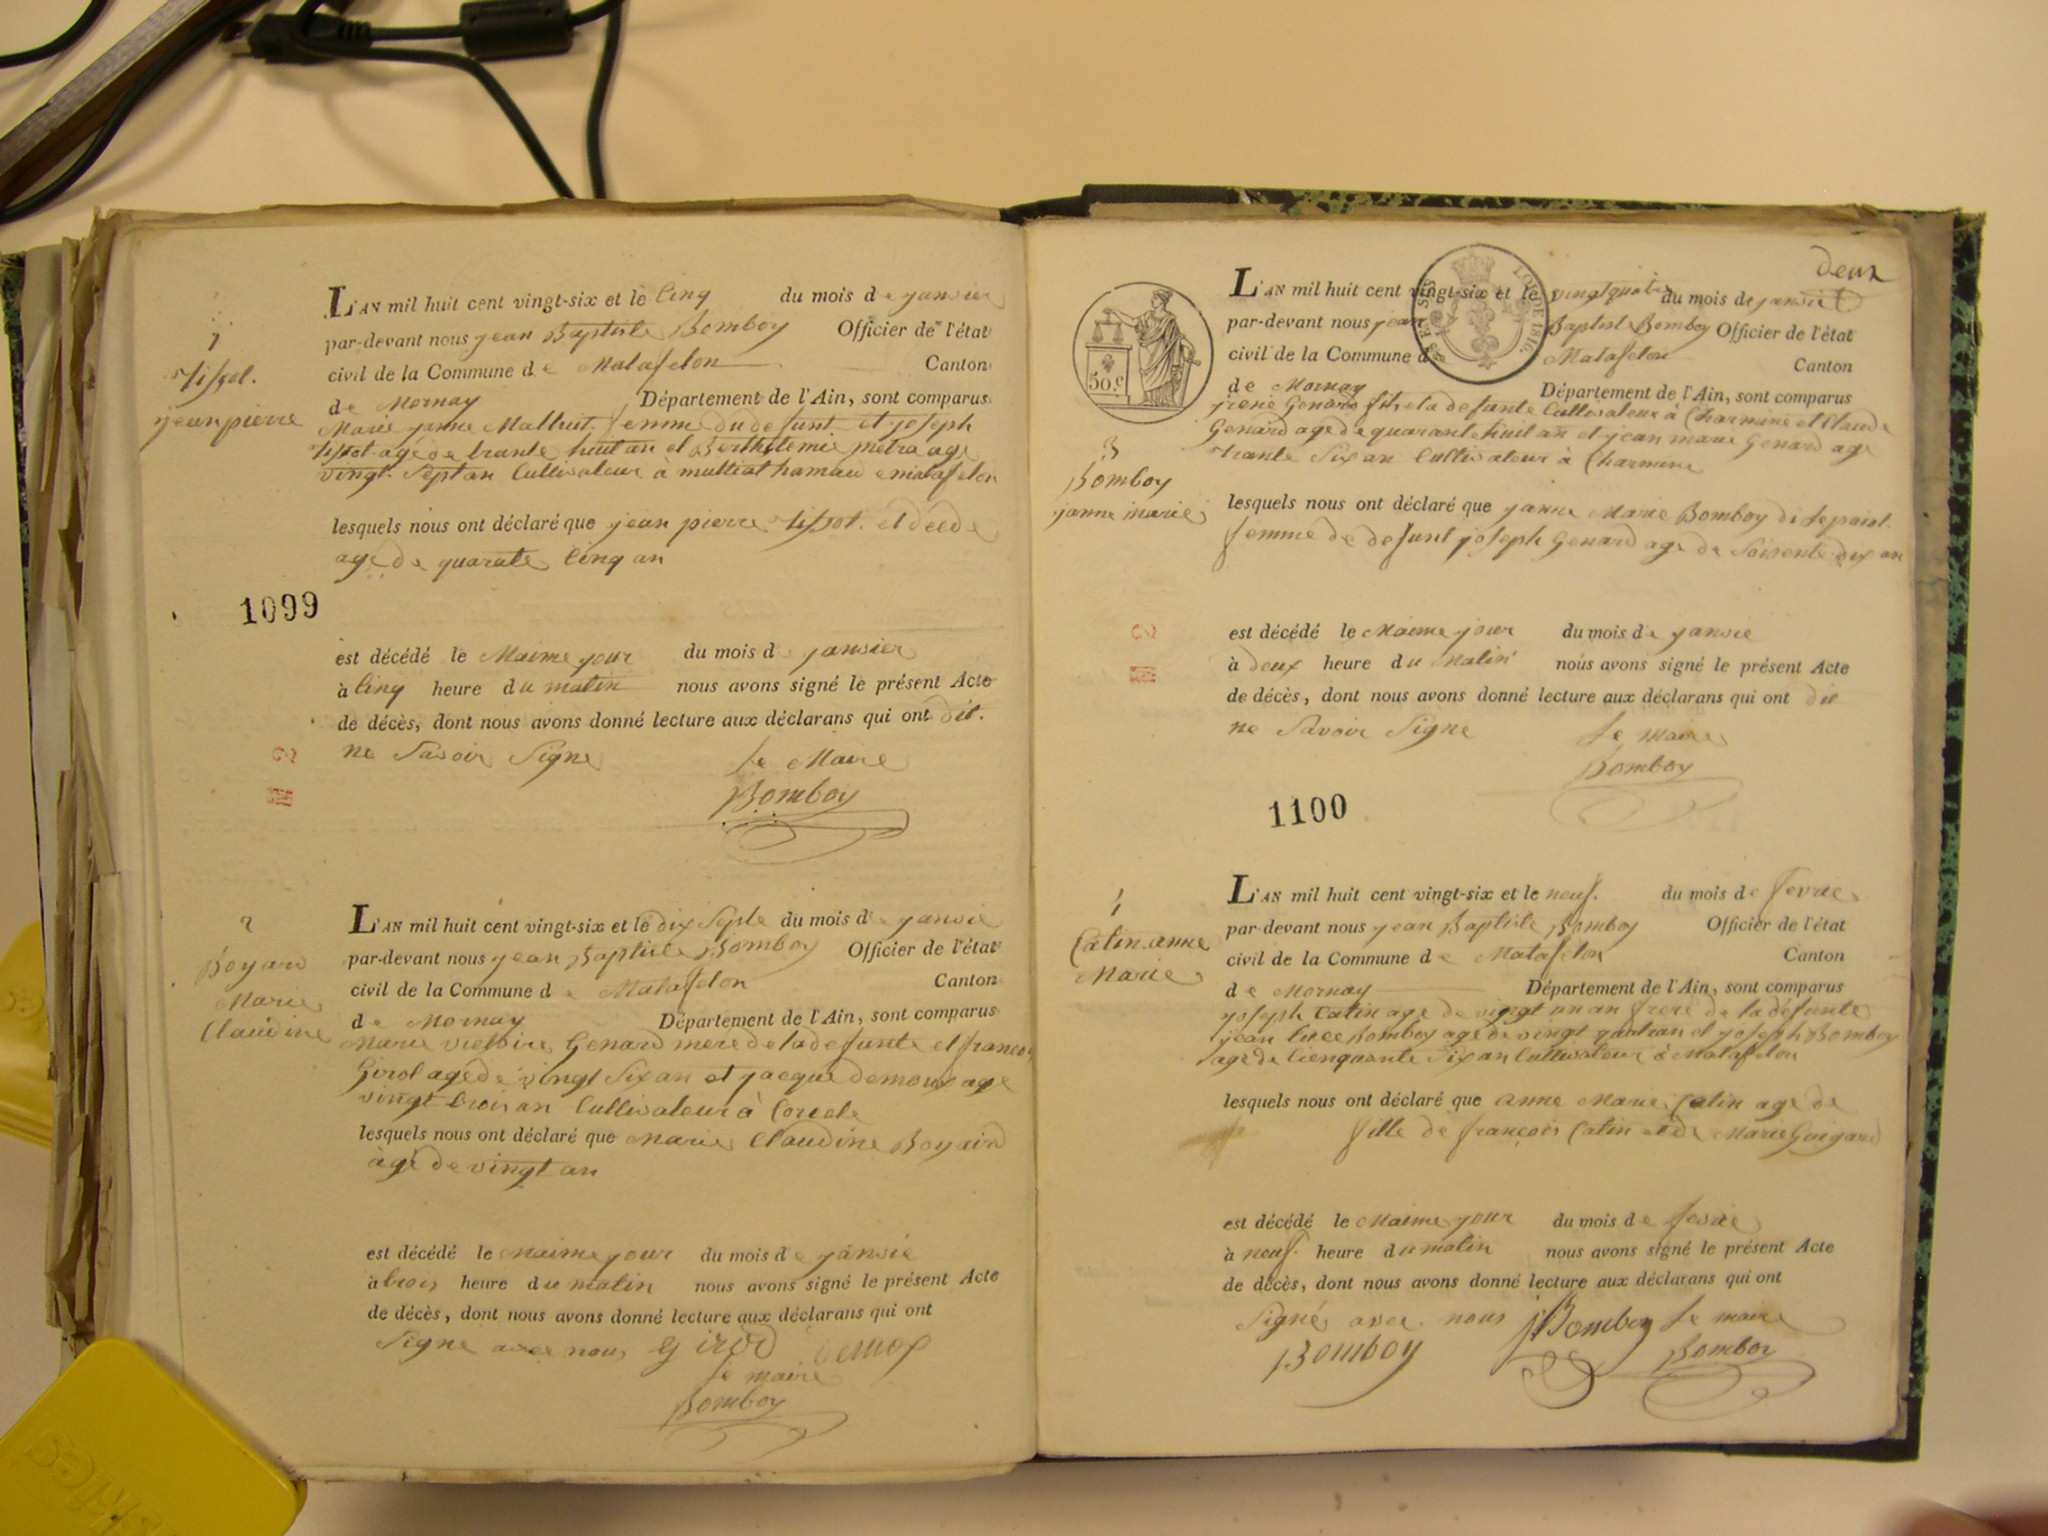 1
Tissot.
jean pierre
L'AN mil huit cent vingt-six et le cinq du mois de janvier
par-devant nous jean Baptiste Bomboy Officier de l'état
civil de la Commune de Matafelon Canton
de Mornay Département de l'Ain, sont comparus
Marie janne femme du defunt et joseph
Tissot agé de trante huit an et Berthelemie age
vingt Sept an Cultivateur a hamau e matafelon
lesquels nous ont déclaré que jean pierre Tissot. et decede
age de quarate cinq an
1099
est décédé le Maime jour du mois de janvier
à cinq heure du matin nous avons signé le présent Acte
de décès, dont nous avons donné lecture aux déclarans qui ont dit.
ne Savoir Signe le Maire
Bomboy
2
Boyard
Marie
Claudine
L'AN mil huit cent vingt-six et le dix Septe du mois de janvie
par-devant nous jean Baptiste Bomboy Officier de l'état
civil de la Commune de Matafelon Canton
de Mornay Département de l'Ain, sont comparus
Marie Genard mere de la defunte et francoi
Girod age de vingt Six an et jacque demoux age
vingt trois an Cultivateur à Corcele
lesquels nous ont déclaré que Marie Claudine Boyard
àgé de vingt an
est décédé le maime jour du mois de janvie
à trois heure du matin nous avons signé le présent Acte
de décès, dont nous avons donné lecture aux déclarans qui ont
Signe avec nous girod demox
le maire
Bomboy
deux
50 c.
LOI DE 1816.
L'AN mil huit cent vingt-six et le vingt quatre du mois de janvie
par-devant nous jean Baptist Bomboy Officier de l'état
civil de la Commune de Matafelon Canton
de Mornay Département de l'Ain, sont comparus
Genard fils de la defunte Cultivateur à Charmine et Claude
Genard age de quarante huit an et jean marie Genard age
trante Six an Cultivateur à Charmine
3
Bomboy
janne marie
lesquels nous ont déclaré que janne Marie Bomboy
femme de defunt joseph Genard age de Soisente dix an
est décédé le Maime jour du mois de janvie
à deux heure du Matin nous avons signé le présent Acte
de décès, dont nous avons donné lecture aux déclarans qui ont dit
ne Savoir Signe le maire
Bomboy
1100
Catin anne
Marie
L'AN mil huit cent vingt-six et le neuf. du mois de fevrie
par-devant nous jean Baptiste Bomboy Officier de l'état
civil de la Commune de Matafelon Canton
de Mornay Département de l'Ain, sont comparus
joseph Catin age de vingt un an frere de la défunte
jean Bomboy age de vingt quatr an et joseph Bomboy
age de Cienquante Six an Cultivateur à Matafelon
lesquels nous ont déclaré que anne Marie Catin age de
fille de françois Catin et de Marie Guigard
est décédé le Maime jour du mois de fevrie
à neuf. heure du matin nous avons signé le présent Acte
de décès, dont nous avons donné lecture aux déclarans qui ont
Signé avec nous jBomboy le maire
Bomboy Bomboy